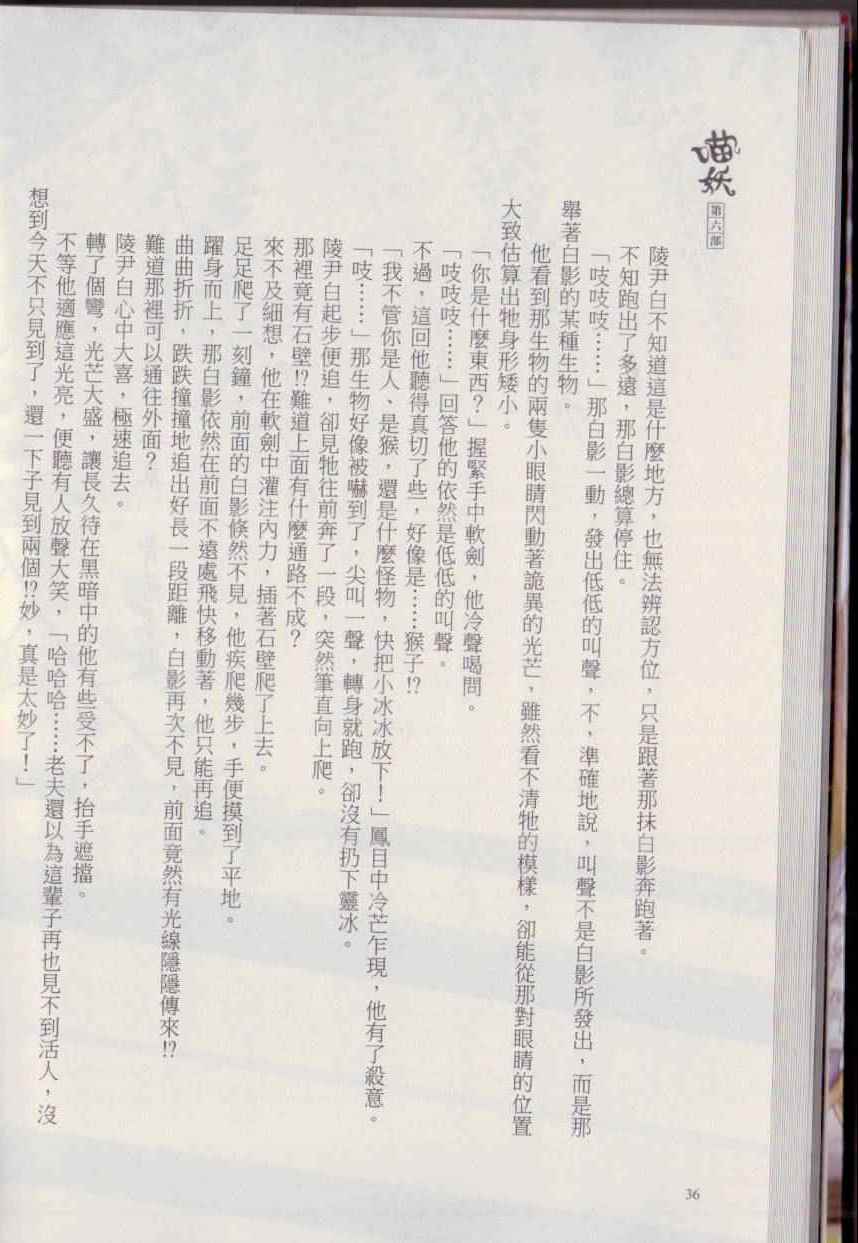 喵妖
第六部
陵尹白不知道這是什麼地方，也無法辨認方位，只是跟著那抹白影奔跑著。
不知跑出了多遠，那白影總算停住。
「吱吱吱……」那白影一動，發出低低的叫聲，不，準確地說，叫聲不是白影所發出，而是那
舉著白影的某種生物。
他看到那生物的兩隻小眼睛閃動著詭異的光芒，雖然看不清牠的模樣，卻能從那對眼睛的位置
大致估算出牠身形矮小。
「你是什麼東西？」握緊手中軟劍，他冷聲喝問。
「吱吱吱……」回答他的依然是低低的叫聲。
不過，這回他聽得真切了些，好像是……猴子!?
「我不管你是人、是猴，還是什麼怪物，快把小冰冰放下！」鳳目中冷芒乍現，他有了殺意。
「吱……」那生物好像被嚇到了，尖叫一聲，轉身就跑，卻沒有扔下靈冰。
陵尹白起步便追，卻見牠往前奔了一段，突然筆直向上爬。
那裡竟有石壁!?難道上面有什麼通路不成？
來不及細想，他在軟劍中灌注內力，插著石壁爬了上去。
足足爬了一刻鐘，前面的白影倏然不見，他疾爬幾步，手便摸到了平地。
躍身而上，那白影依然在前面不遠處飛快移動著，他只能再追。
曲曲折折，跌跌撞撞地追出好長一段距離，白影再次不見，前面竟然有光線隱隱傳來!?
難道那裡可以通往外面？
陵尹白心中大喜，極速追去。
轉了個彎，光芒大盛，讓長久待在黑暗中的他有些受不了，抬手遮擋。
不等他適應這光亮，便聽有人放聲大笑，「哈哈哈……老夫還以為這輩子再也見不到活人，沒
想到今天不只見到了，還一下子見到兩個!?妙，真是太妙了！」
36